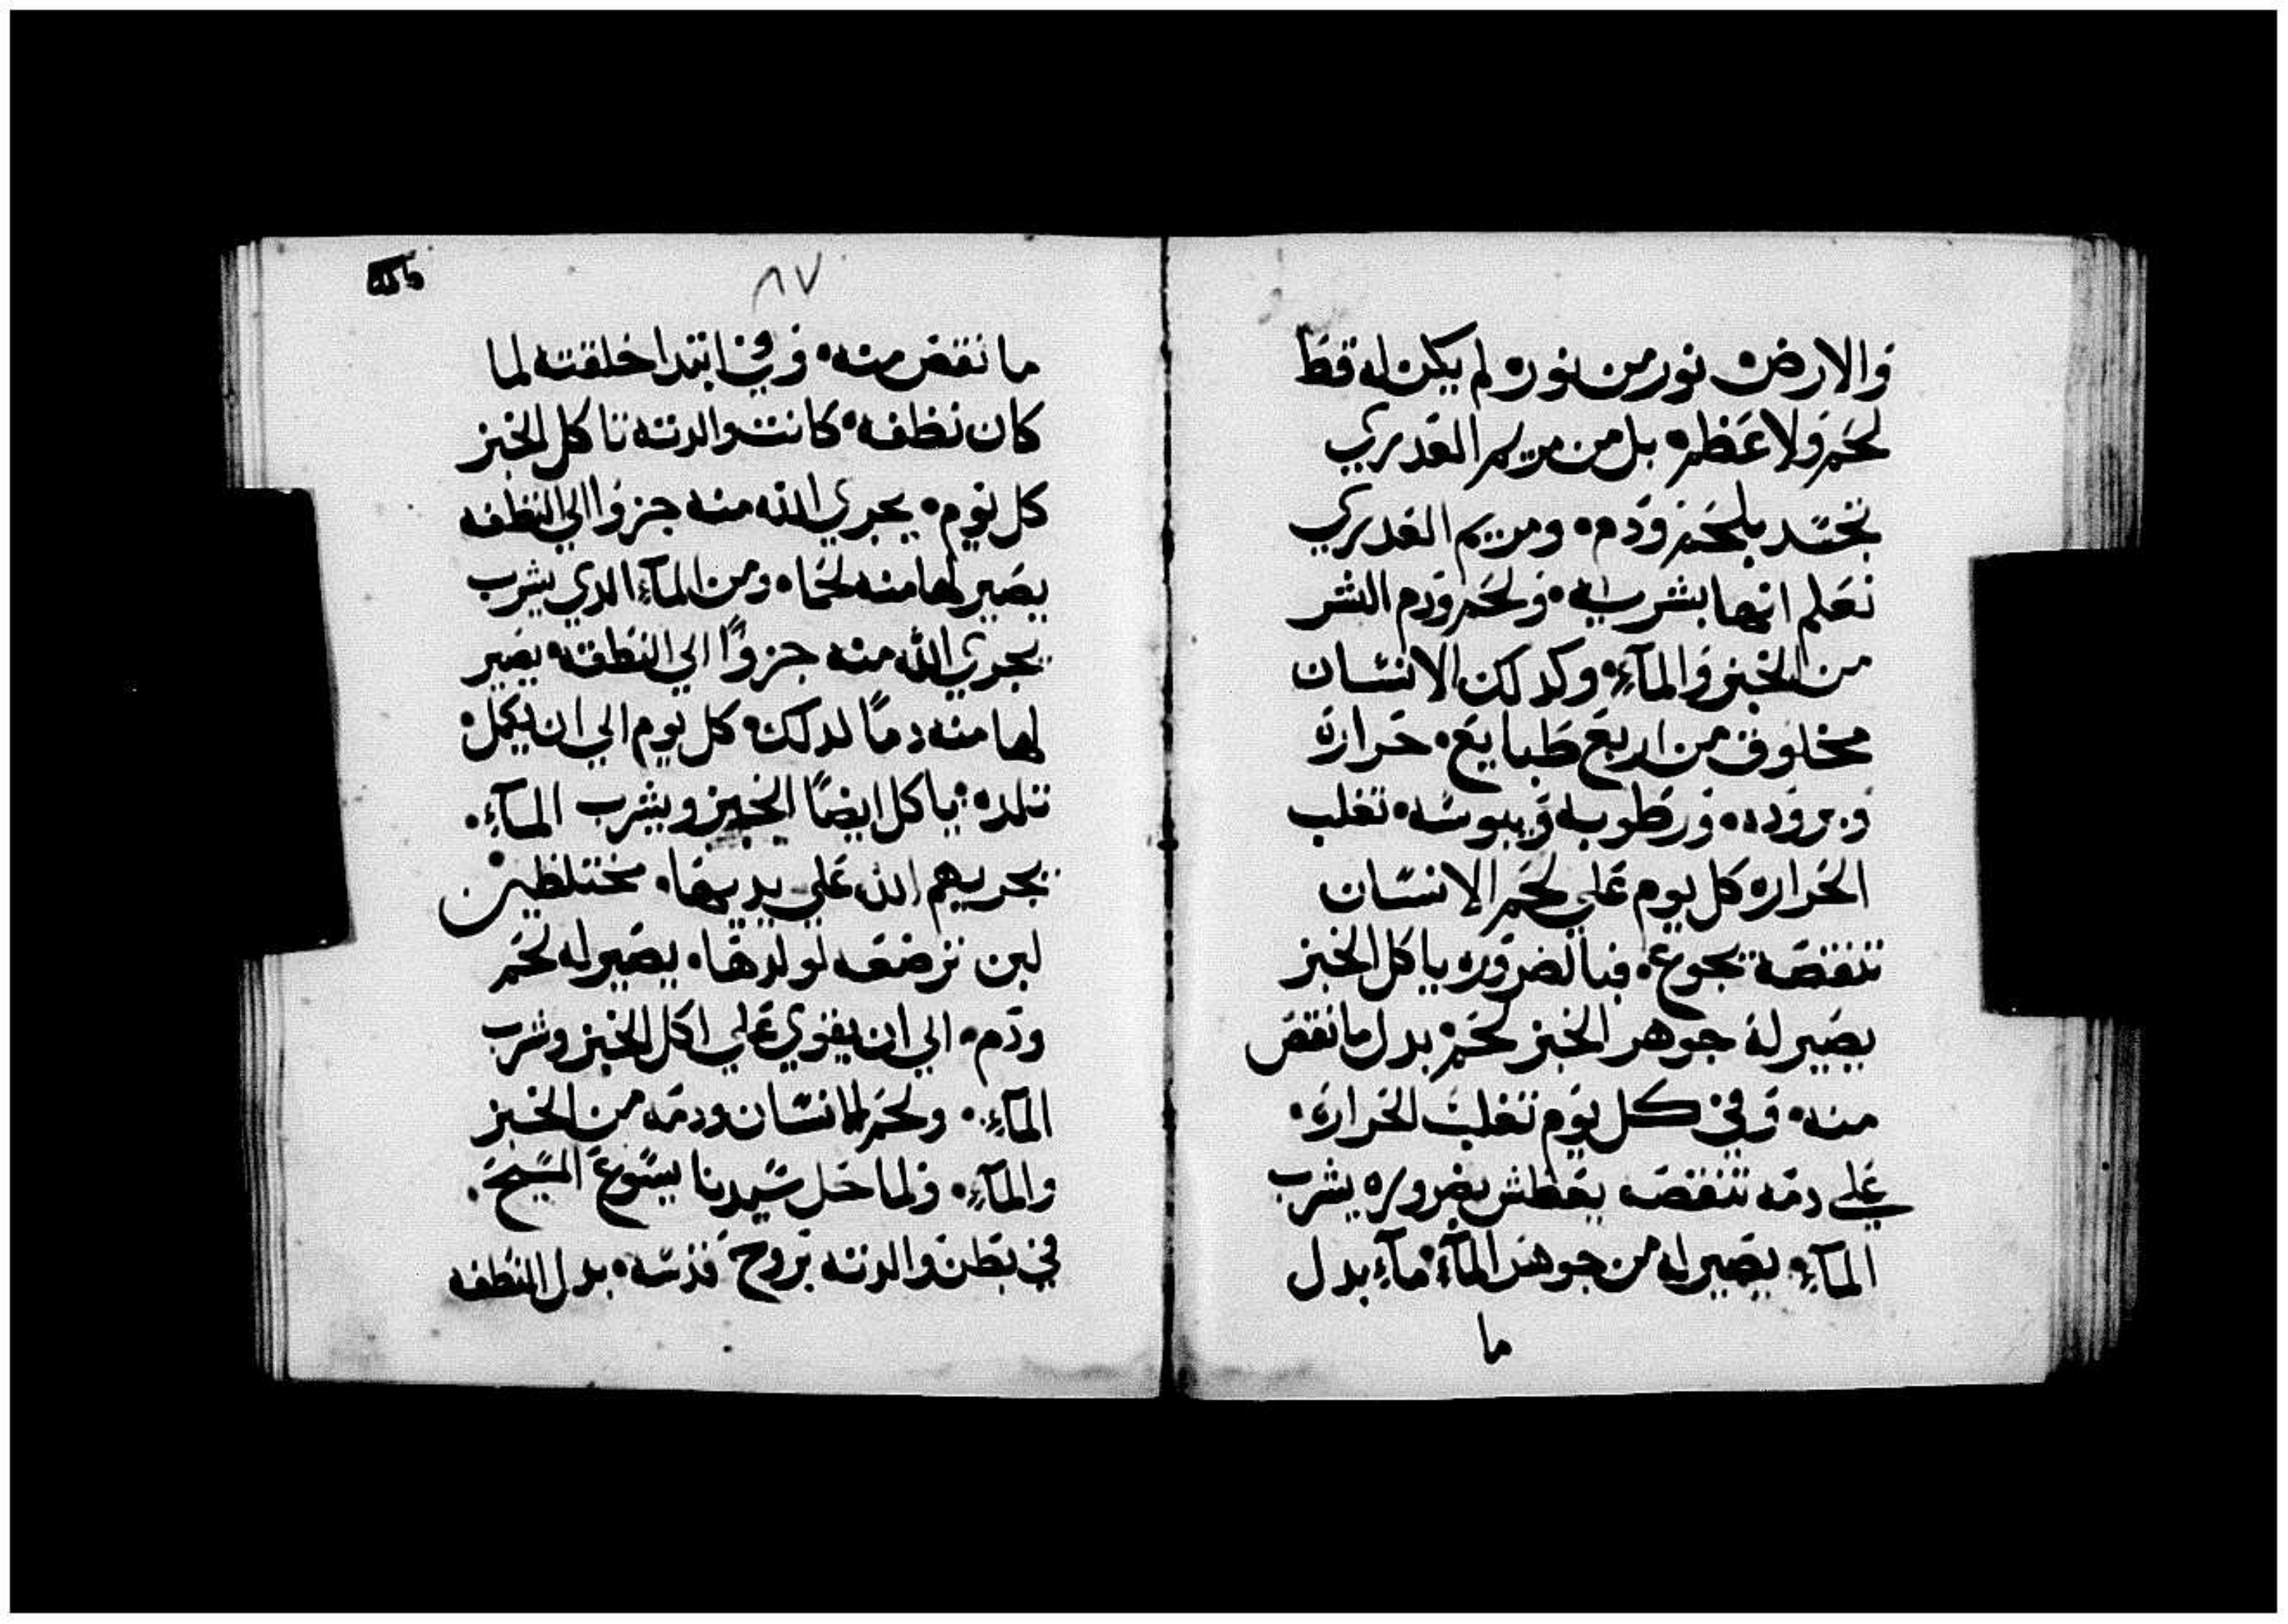 والارض نور من نوره لم يكن له قط
لحم ولا عظم بل من مريم العدري
تجسد بلحم ودم ومريم العدري
نعلم انها بشريه ولحم ودم البشر
من الخبز والمآء وكدلك الانسان
مخلوق من اربع طبايع حراره
وبروده ورطوبه ويبوسه تغلب
الحراره كل يوم علي لحم الانسان
تنقصه يجوع فبالضروره ياكل الخبز
يصير له جوهر الخبز لحم بدل ما نقص
منه وفي كل يوم تغلب الحراره
علي دمه تنقصه يعطش بضروره يشرب
المآء يصير له من جوهر المآء مآء بدل
ما
٨٧
ما نقص منه وفي ابتدا خلقته لما
كان نطفه كانت والدته تاكل الخبز
كل يوم يجري الله منه جزوا الي النطفه
يصير لها منه لحما ومن المآء الدي يشرب
يجري الله منه جزوًا الي النطفه يصير
لها منه دمًا لدلك كل يوم الي ان يكمل
تلده ياكل ايضًا الخبز ويشرب المآء
يجريهم الله علي يديها مختلطين
لبن ترضعه لولدها يصير له لحم
ودم الي ان يقوي علي اكل الخبز وشرب
المآء ولحم الانسان ودمه من الخبز
والمآء ولما حل سيدنا يسوع المسيح
في بطن والدته بروح قدسه بدل النطفه